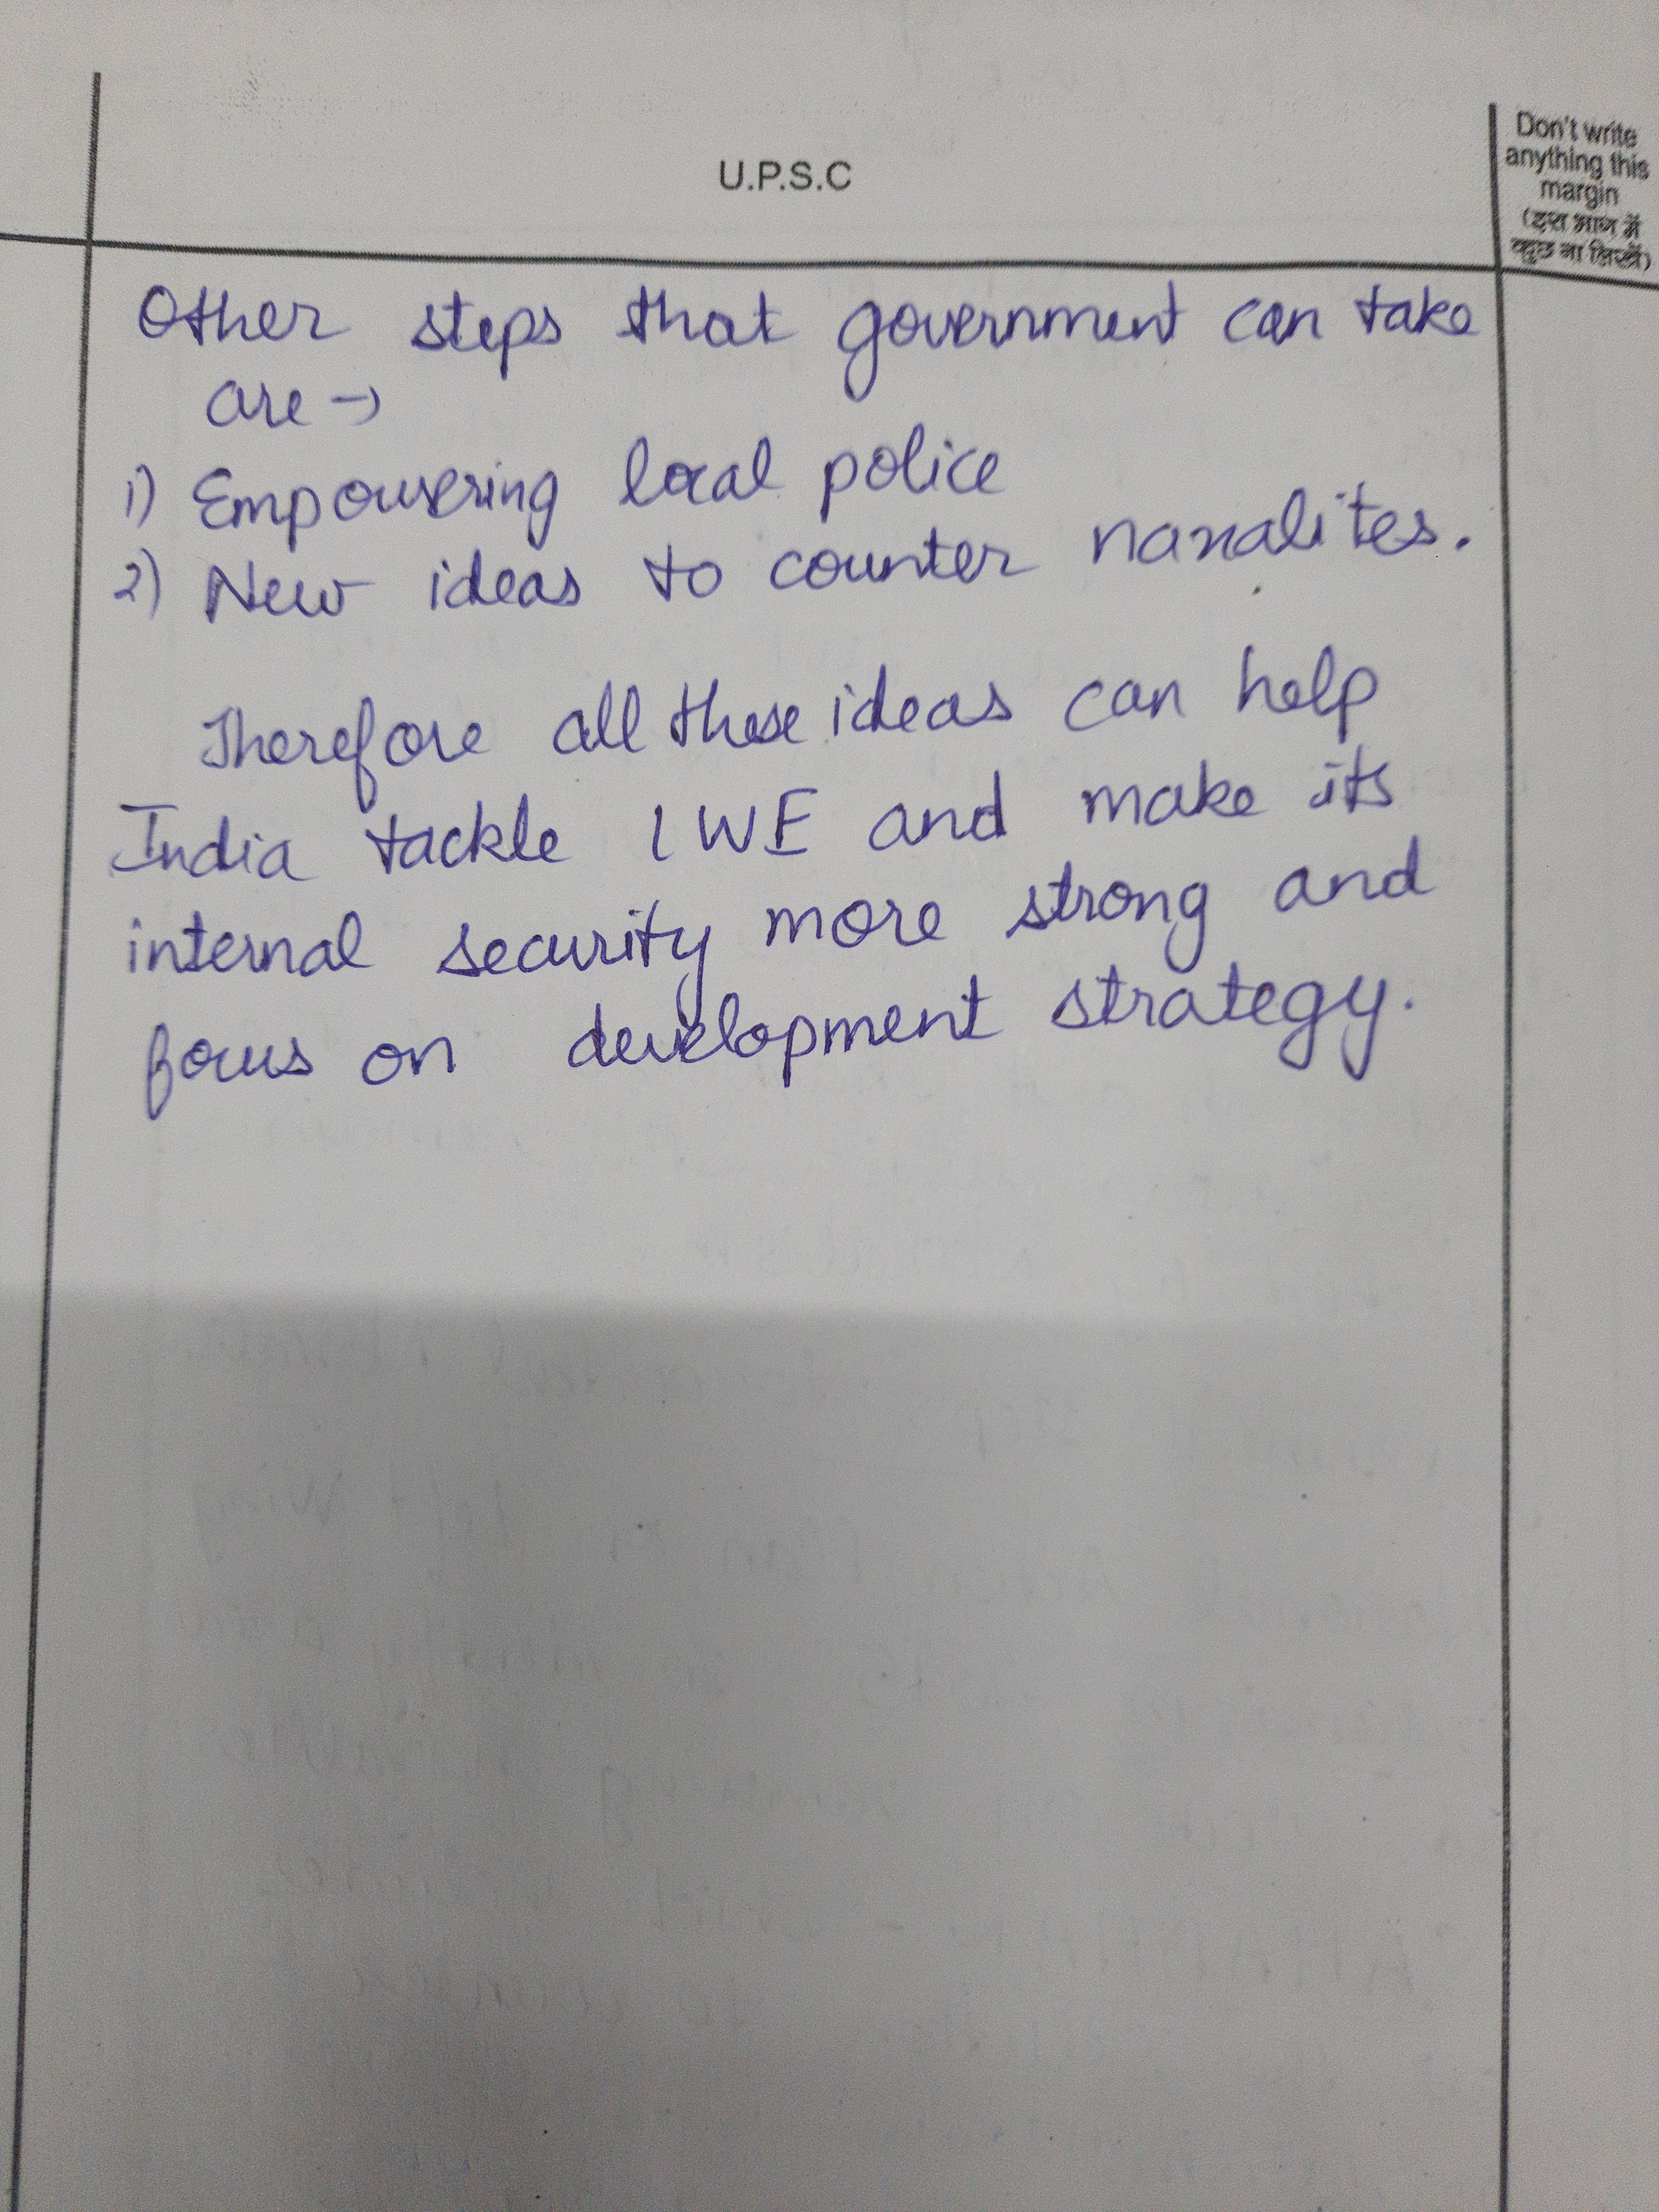 U.P.S.C
Don't write
anything this
margin
(इस भाग में
कुछ ना लिखें)
Other steps that government can take
are →
1) Empowering local police
2) New ideas to counter naxalites.
Therefore all these ideas can help
India tackle LWE and make its
internal security more strong and
focus on development strategy.